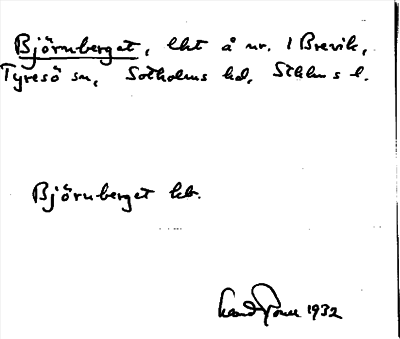 Björnberget, lht å nr. 1 Brevik,
Tyresö sn, Sotholms hd, Sthlms l.
Björnberget kb.
1932